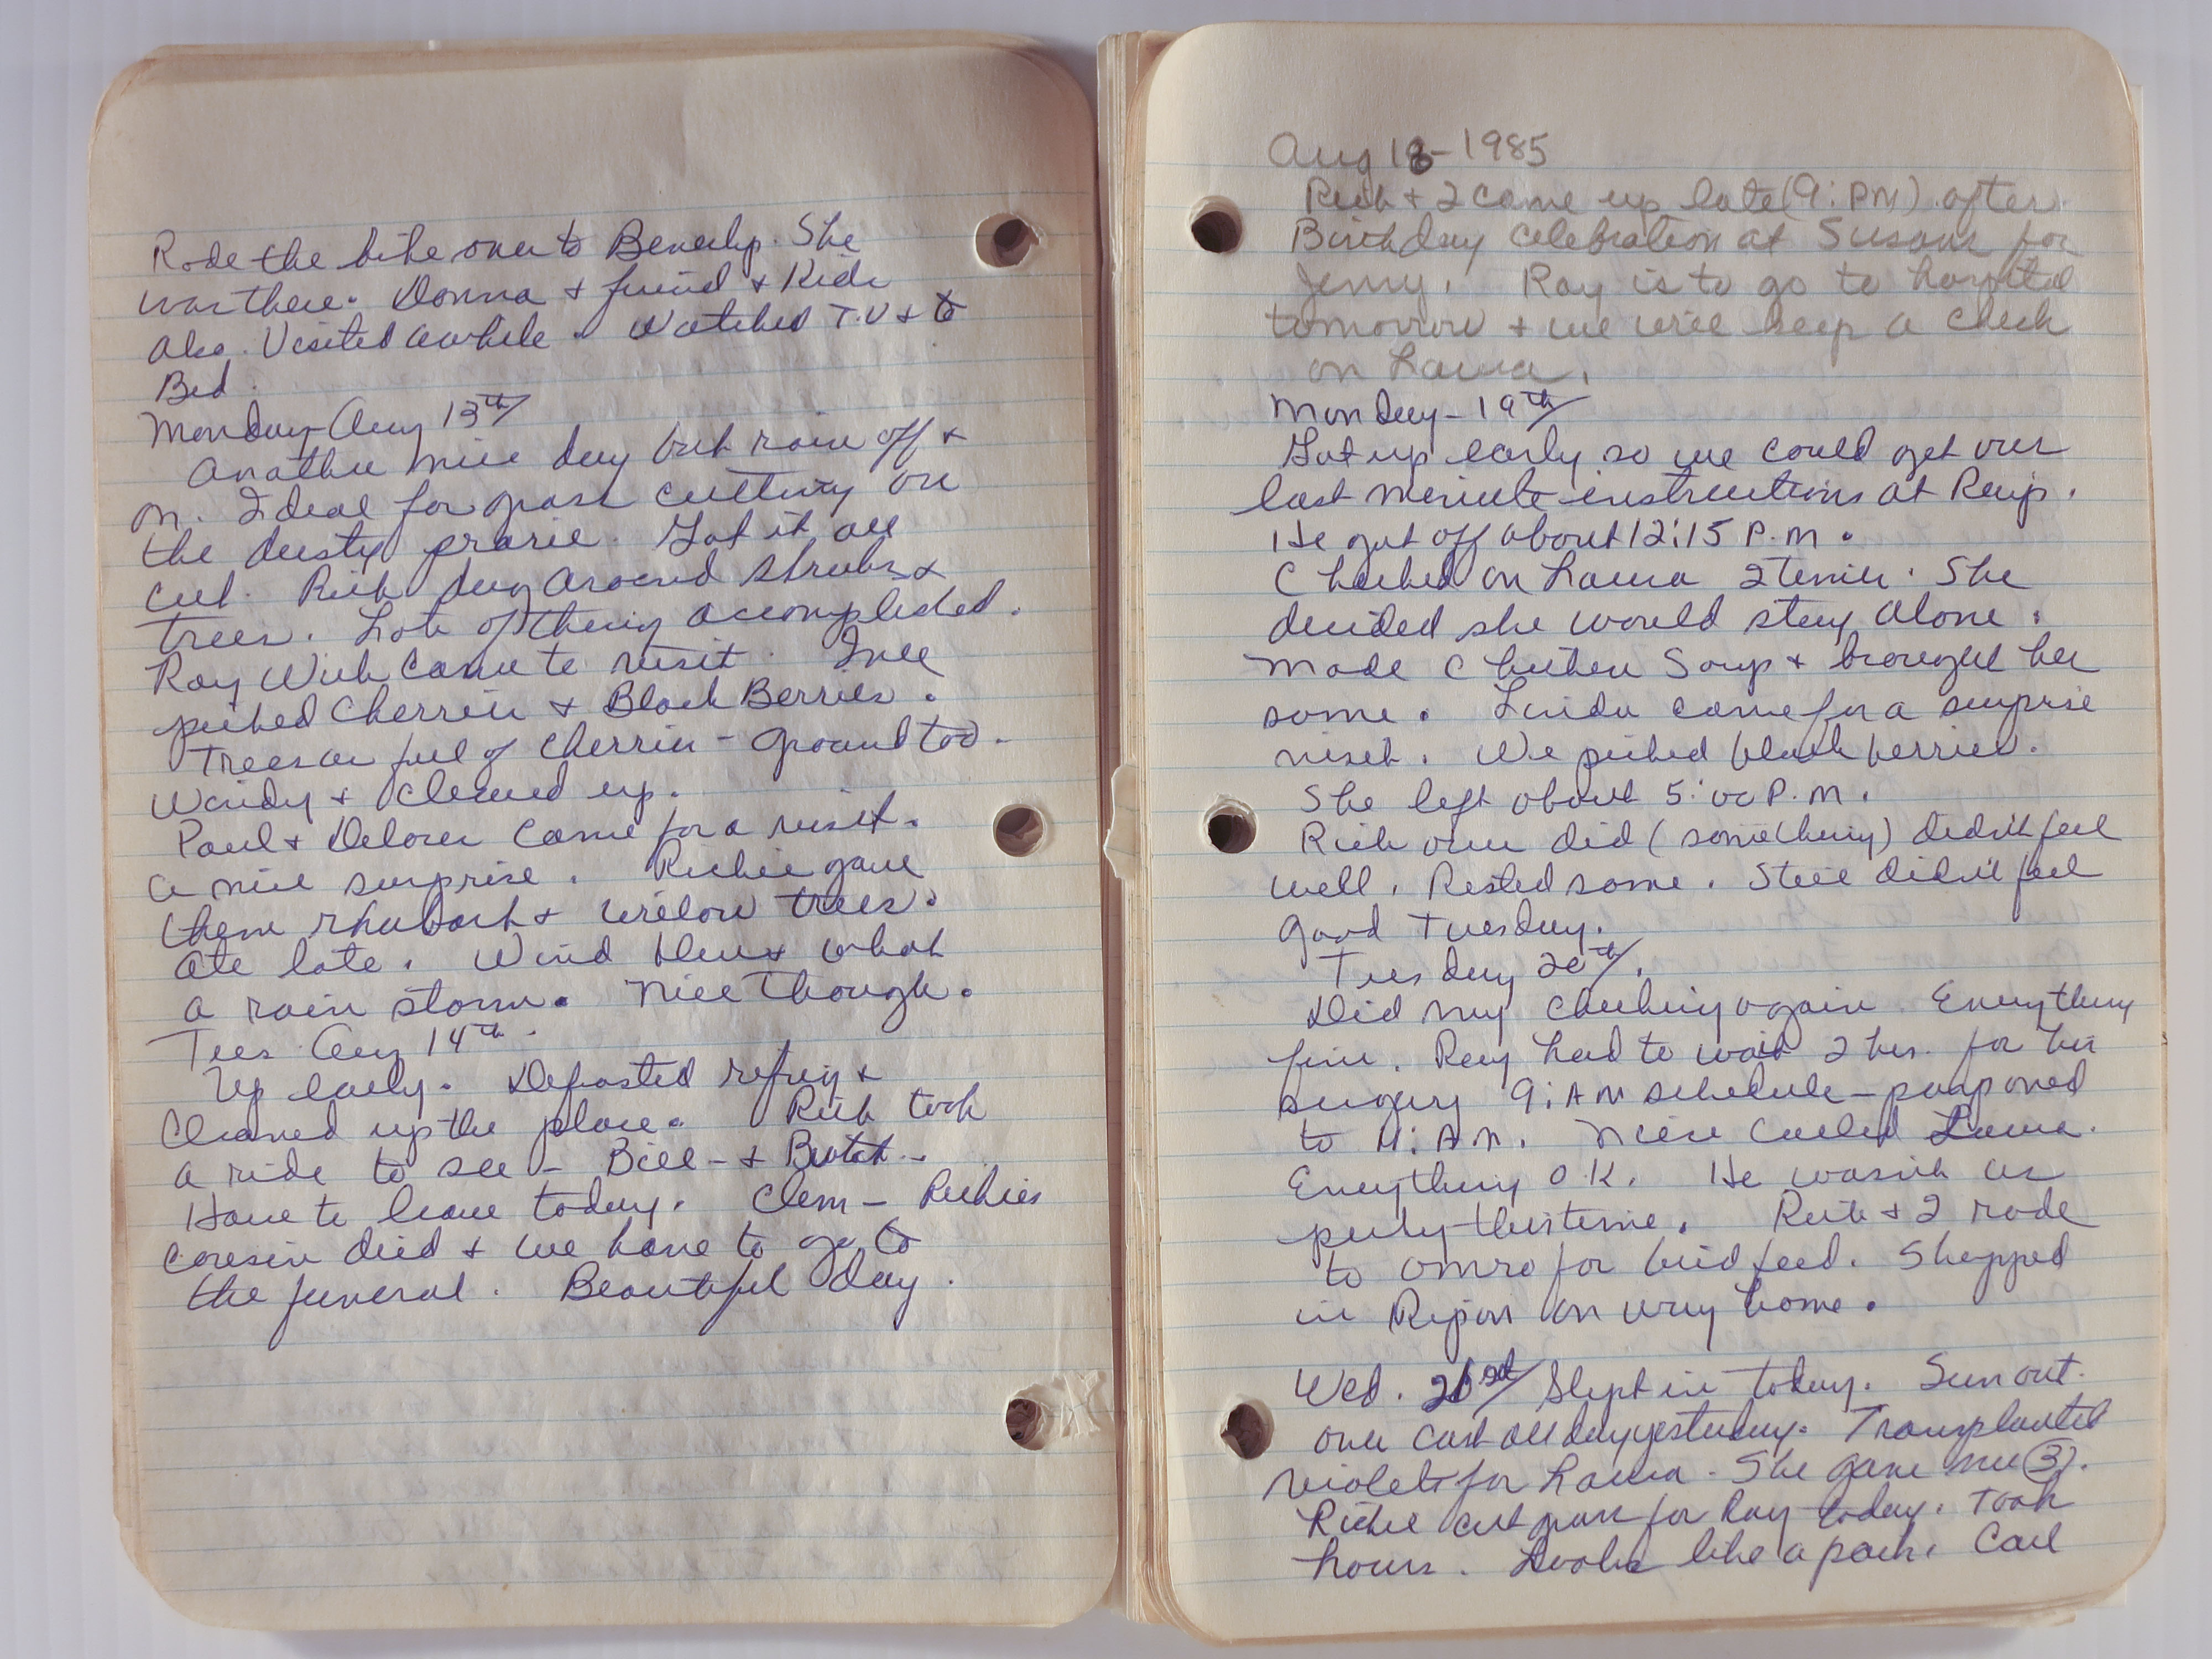 Rode the bike over to Beverly. She
was there. Donna + friend + Kids
also. Visited awhile. Watched T.V + to
Bed.
Monday Aug 13th
Another nice day but rain off +
on. Ideal for grass cutting on
the dusty prarie. Got it all
cut. Rich dug around shrubs +
trees. Lots of things accomplished.
Ray Wick came to visit.
picked Cherries + Black Berries.
Trees are full of Cherries - ground too.
Windy + cleared up.
Paul + Delores came for a visit.
a nice surprise. Richie gave
them rhubarb + willow trees.
Ate late. Wind blew + what
a rain storm. Nice though.
Tues Aug 14th
Up early. Defrosted refrig +
Cleaned up the place. Rich took
a ride to see - Bill - + Butch -
Have to leave today. Clem - Richies
cousin died + we have to go to
the funeral. Beautiful day.
Aug 18 - 1985
Rich + I came up late (9: PM) after
Birthday celebration at Susans for
Jenny. Ray is to go to hospital
tomorrow + we will keep a check
on Laura.
Monday - 19th
Got up early so we could get our
last minute instructions at Rays.
He got off about 12:15 P.M.
Checked on Laura 2 times. She
decided she would stay alone.
Made Chicken Soup + brought her
some. Linda came for a surprise
visit. We picked black berries.
She left about 5:00 P.M.
Rich over did (something) didn't feel
well. Rested some. Still didn't feel
good Tuesday.
Tues day 20th.
Did my checking again. Everything
fine. Ray had to wait 2 hrs. for his
surgery 9: AM schedule - posponed
to 11: A.M. Niece called Laura.
Everything O.K. He wasn't as
perky this time. Rich + I rode
to Omro for bird feed. Shopped
in Ripon on way home.
Wed. 21st Slept in today. Sun out.
Over cast all day yesterday. Transplanted
violets for Laura. She gave me 3.
Richie cut grass for Ray today. Took
hours. Looks like a park. Carl